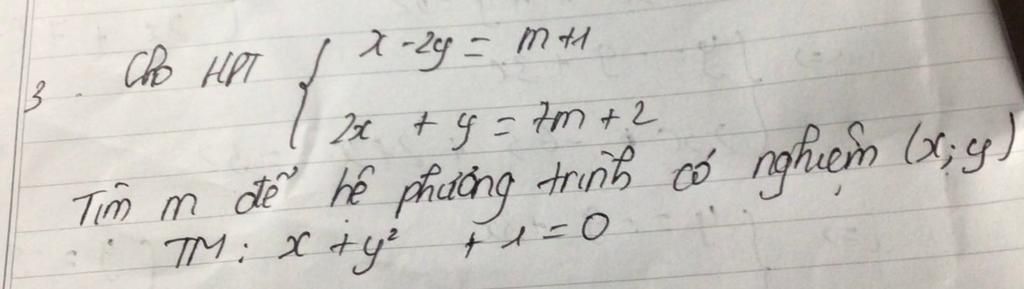 3. Cho HPT { x - 2y = m+1
2x + y = 7m + 2
Tìm m để hệ phương trình có nghiệm (x; y)
TM: x + y² + 1 = 0